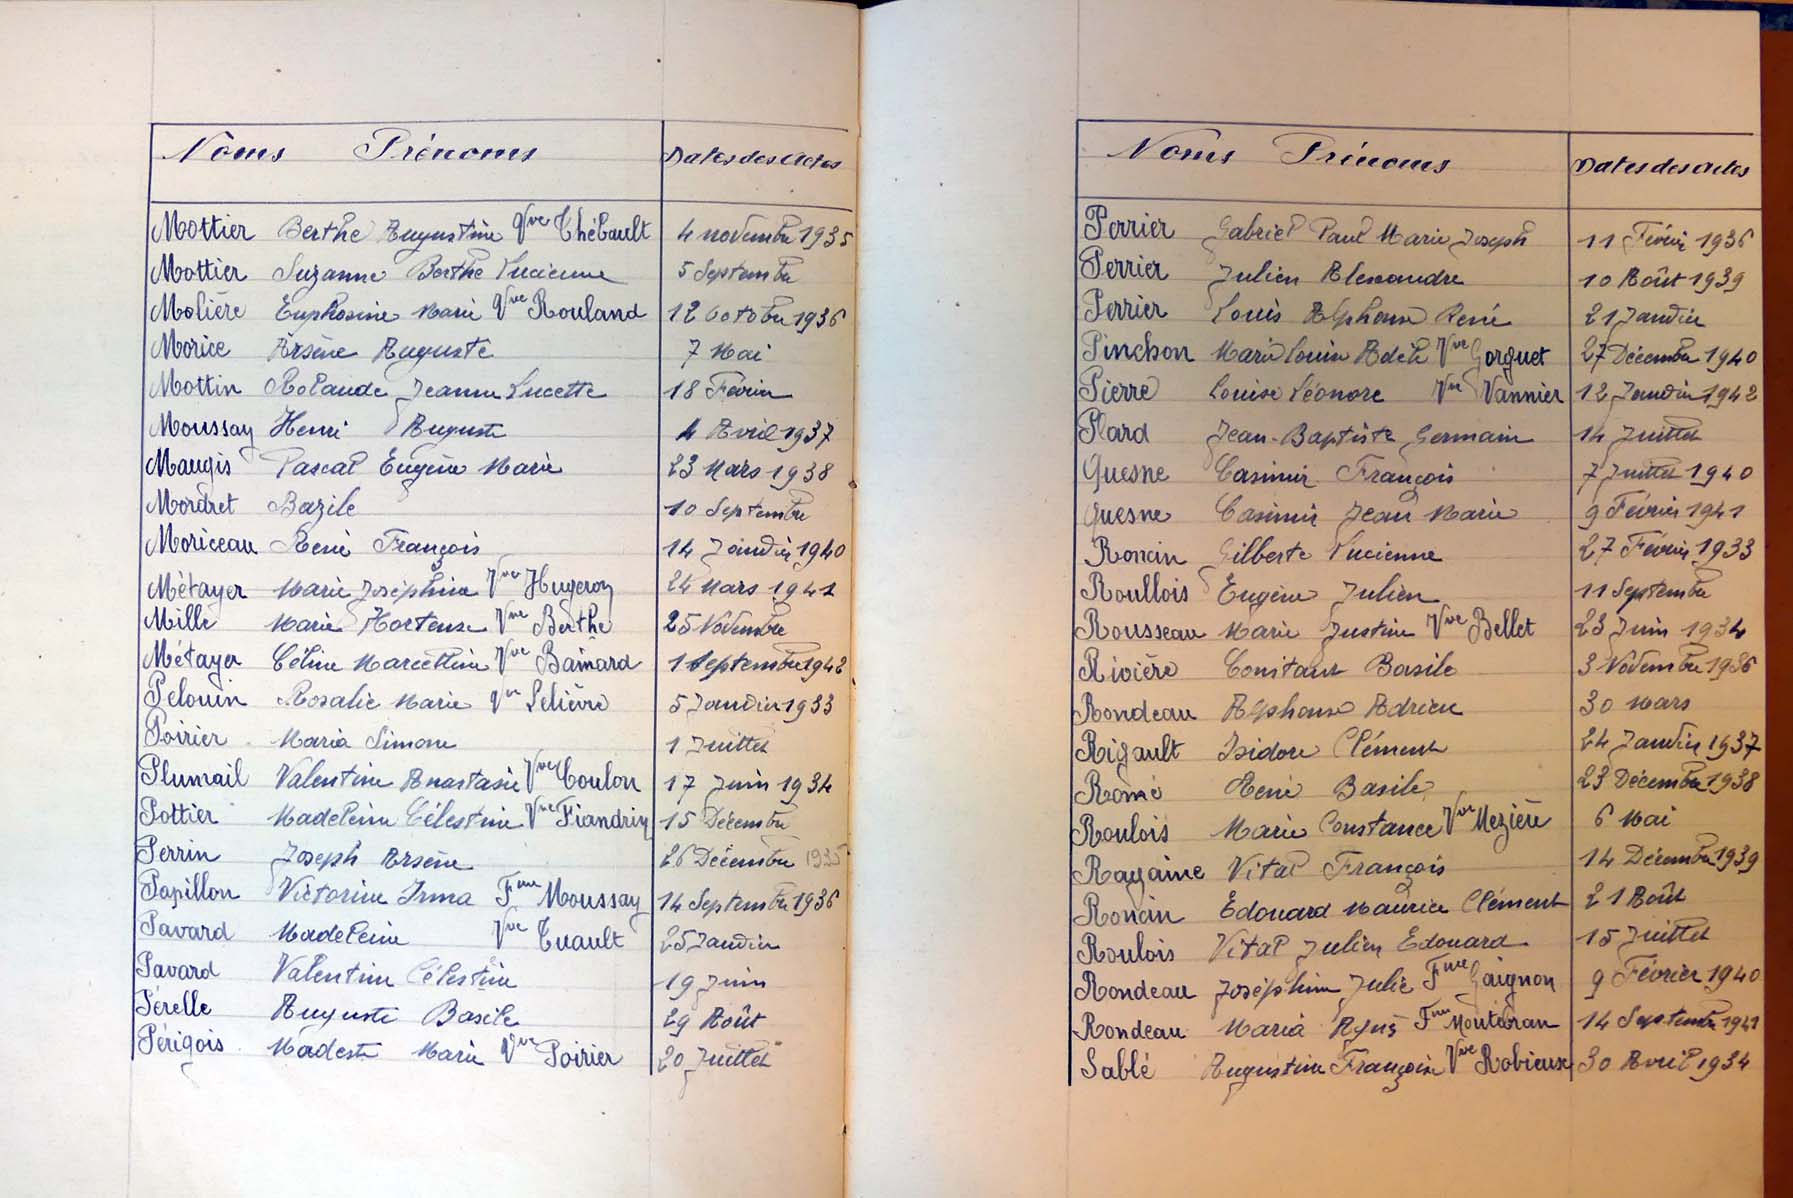 Noms Prénoms Dates des Actes
Mottier Berthe Augustine Vve Thébault 4 novembre 1935
Mottier Suzanne Berthe Lucienne 5 Septembre
Molière Euphosine Marie Vve Rouland 12 octobre 1936
Morice Arsène Auguste 7 Mai
Mottin Rolande Jeanne Lucette 18 Février
Moussay Henri Auguste 4 Avril 1937
Maugis Pascal Eugène Marie 23 Mars 1938
Mordret Bazile 10 Septembre
Moriceau René François 14 Janvier 1940
Métayer Marie Joséphine Vve Hugeron 24 Mars 1941
Mille Marie Hortense Vve Berthe 25 Novembre
Métayer Céline Marcelline Vve Bainard 1 Septembre 1942
Pelouin Rosalie Marie Vve Lelièvre 5 Janvier 1933
Poirier Maria Simone 1 Juillet
Plumail Valentine Anastasie Vve Coulon 17 Juin 1934
Pottier Madeleine Célestine Vve Fiandrin 15 Décembre
Perrin Joseph Arsène 26 Décembre 1935
Papillon Victorine Irma Fme Moussay 14 Septembre 1936
Pavard Madeleine Vve Tuault 25 Janvier
Pavard Valentine Célestine 19 Juin
Pérelle Auguste Basile 29 Août
Périgois Modeste Marie Vve Poirier 20 Juillet
Noms Prénoms Dates des Actes
Perrier Gabriel Paul Marie Joseph 11 Février 1936
Perrier Julien Alexandre 10 Août 1939
Perrier Louis Alphonse René 21 Janvier
Pinchon Marie Louise Adèle Vve Gorguet 27 Décembre 1940
Pierre Louise Léonore Vve Vannier 12 Janvier 1942
Plard Jean-Baptiste Germain 14 Juillet
Quesne Casimir François 7 Juillet 1940
Quesne Casimir Jean Marie 9 Février 1941
Roncin Gilberte Lucienne 27 Février 1933
Roullois Eugène Julien 11 Septembre
Rousseau Marie Justine Vve Bellet 23 Juin 1934
Rivière Constant Basile 3 Novembre 1936
Rondeau Alphonse Adrien 30 Mars
Rigault Isidore Clément 24 Janvier 1937
Romé René Basile 23 Décembre 1938
Roulois Marie Constance Vve Mezière 6 Mai
Ragaine Vital François 14 Décembre 1939
Roncin Edouard Maurice Clément 21 Août
Roulois Vital Julien Edouard 15 Juillet
Rondeau Joséphine Julie Fme Gaignon 9 Février 1940
Rondeau Maria Fme Montebran 14 Septembre 1941
Sablé Augustine Françoise Vve Robieux 30 Avril 1934